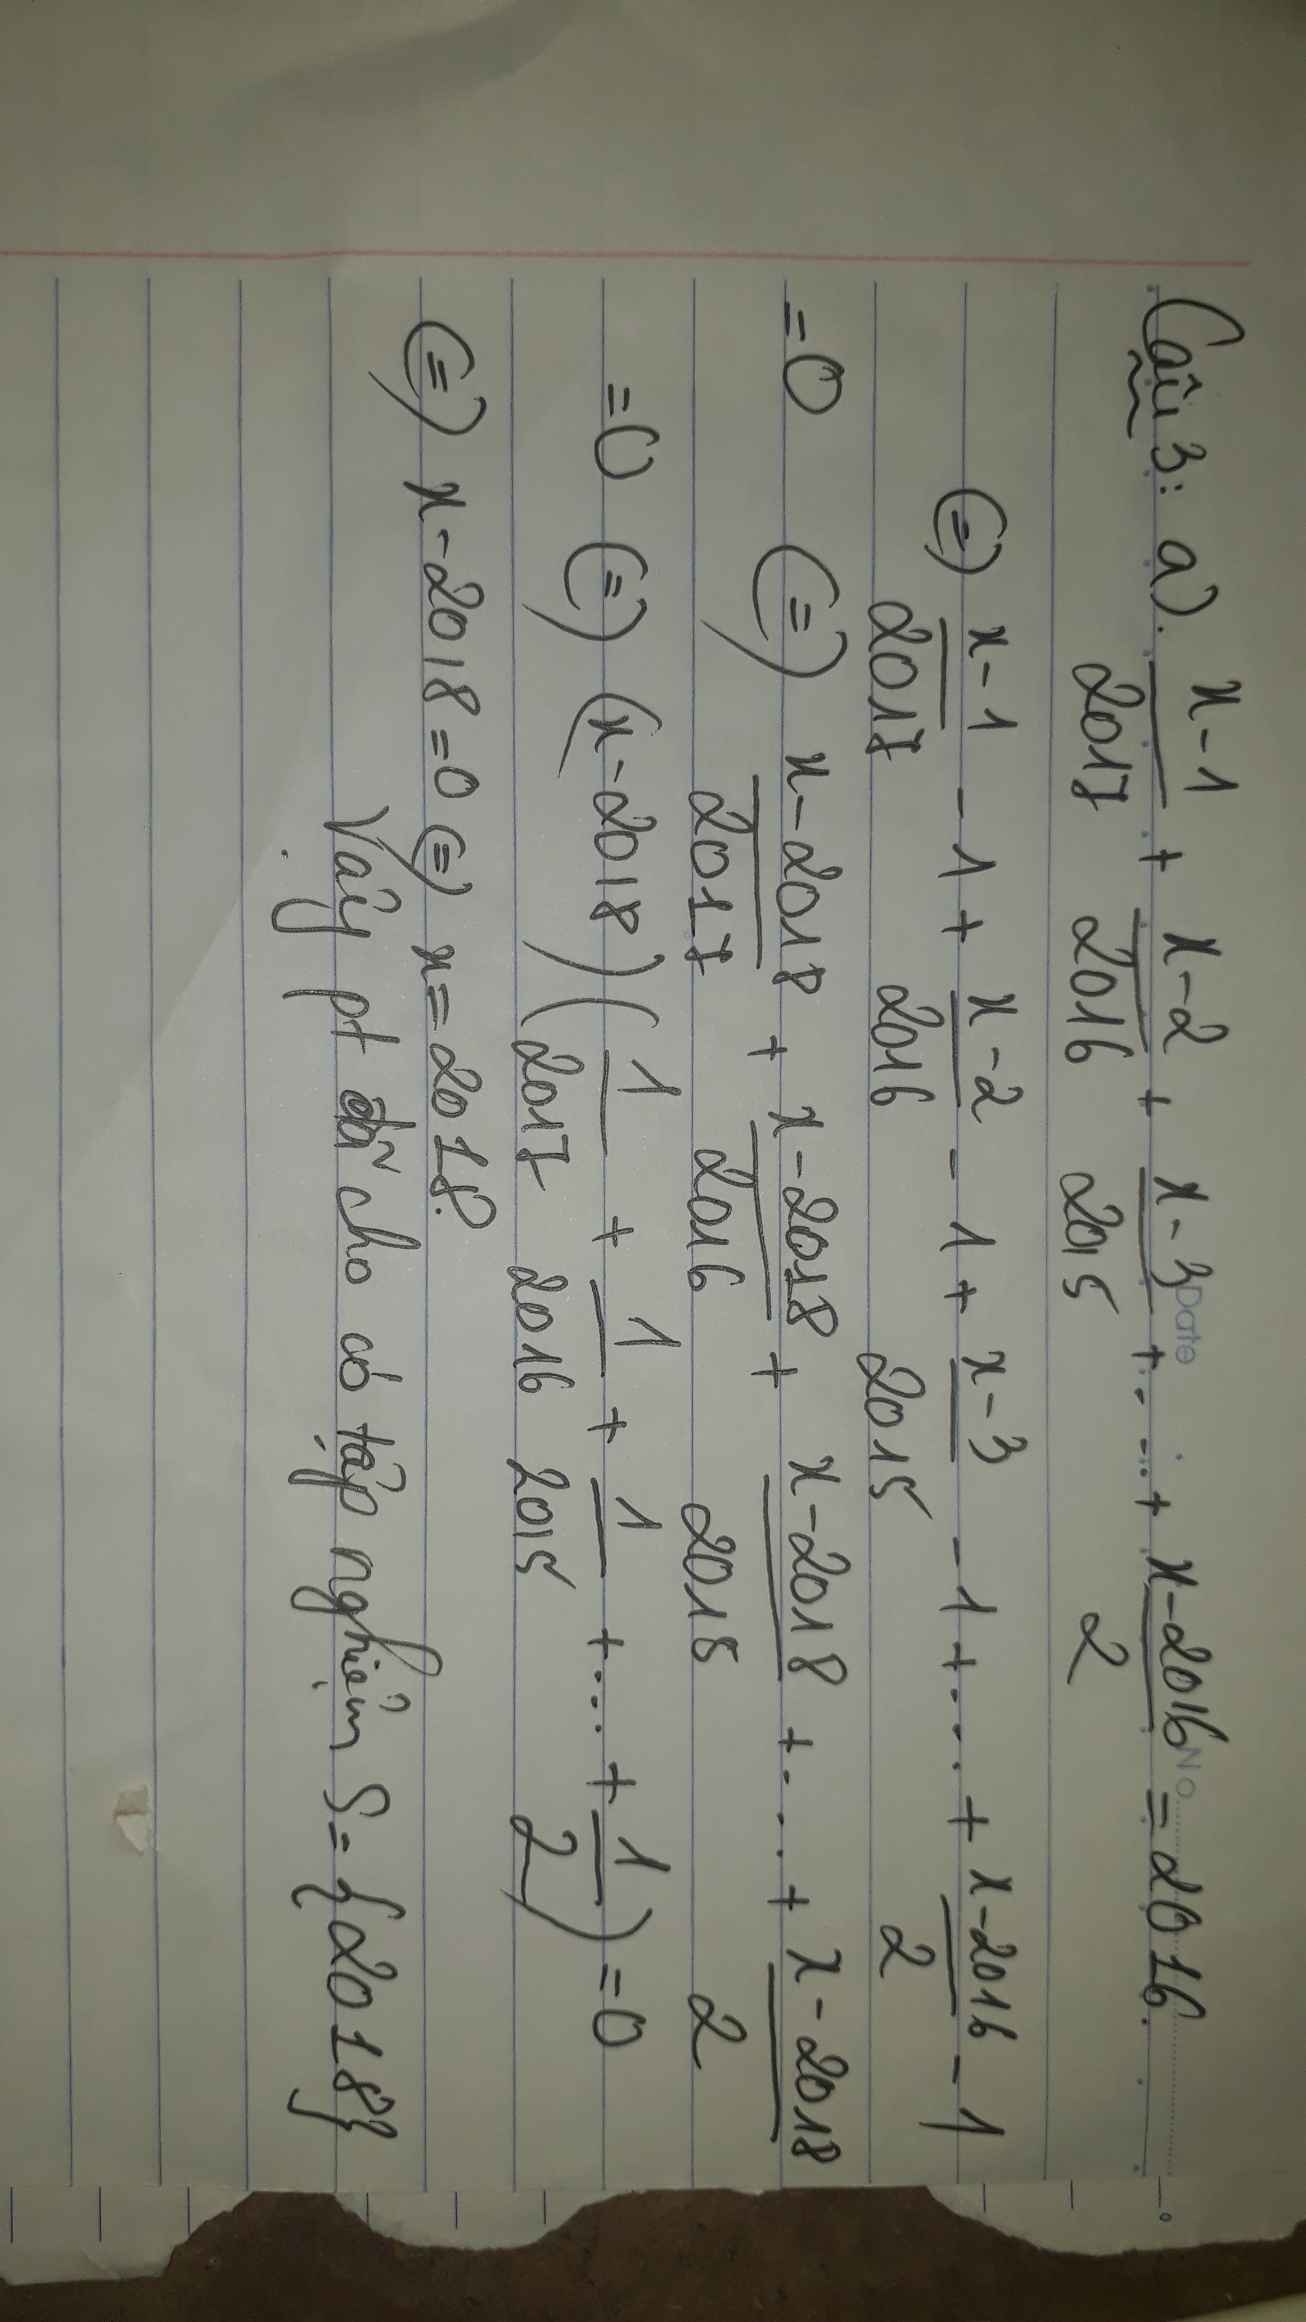 Date No
Câu 3: a). x-1/2017 + x-2/2016 + x-3/2015 + ... + x-2016/2 = 2016.
(=) x-1/2017 - 1 + x-2/2016 - 1 + x-3/2015 - 1 + ... + x-2016/2 - 1
=0 (=) x-2018/2017 + x-2018/2016 + x-2018/2015 + ... + x-2018/2
=0 (=) (x-2018)(1/2017 + 1/2016 + 1/2015 + ... + 1/2) =0
(=) x-2018=0 (=) x=2018.
Vậy pt đã cho có tập nghiệm S={2018}